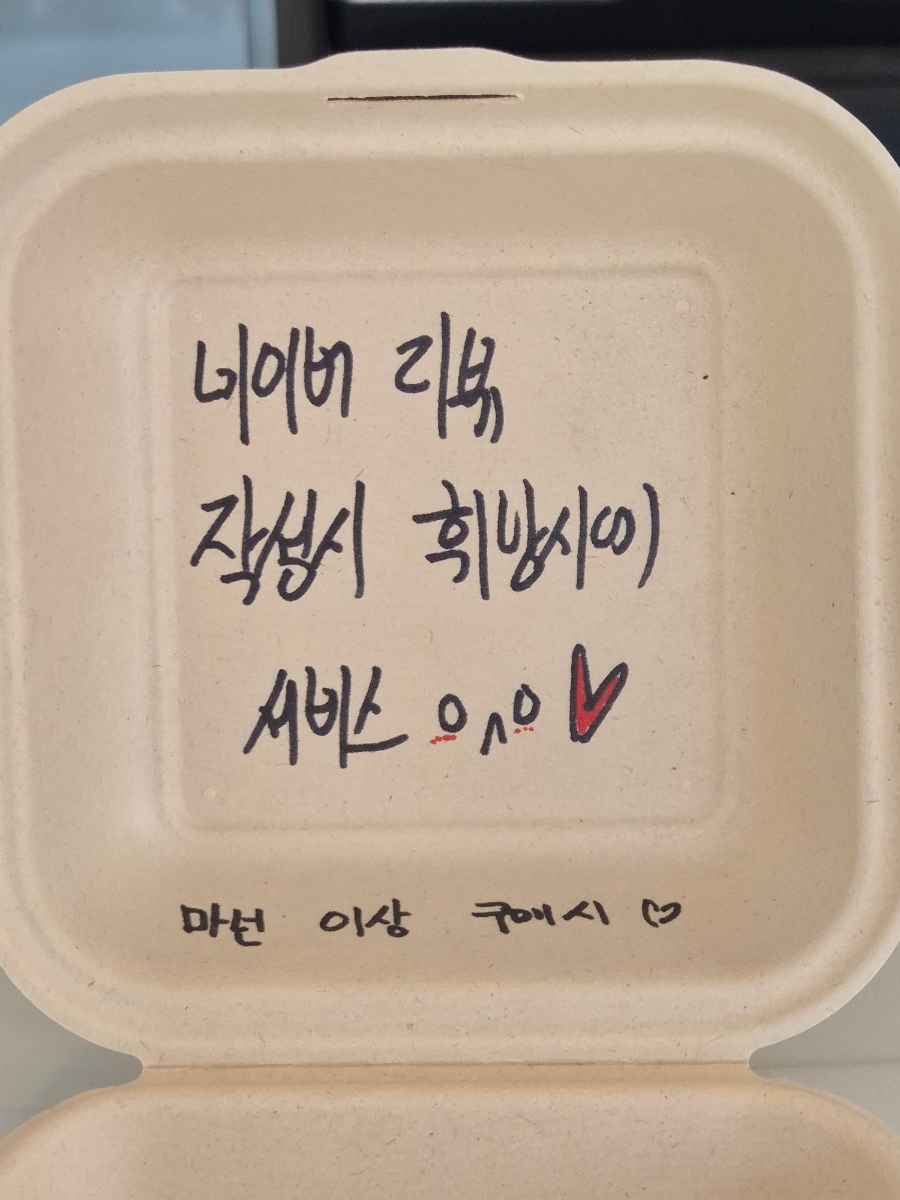 네이버 리뷰
작성시 휘낭시에
서비스 ㅇㅅㅇ ♥
마넌 이상 구매시 ♡